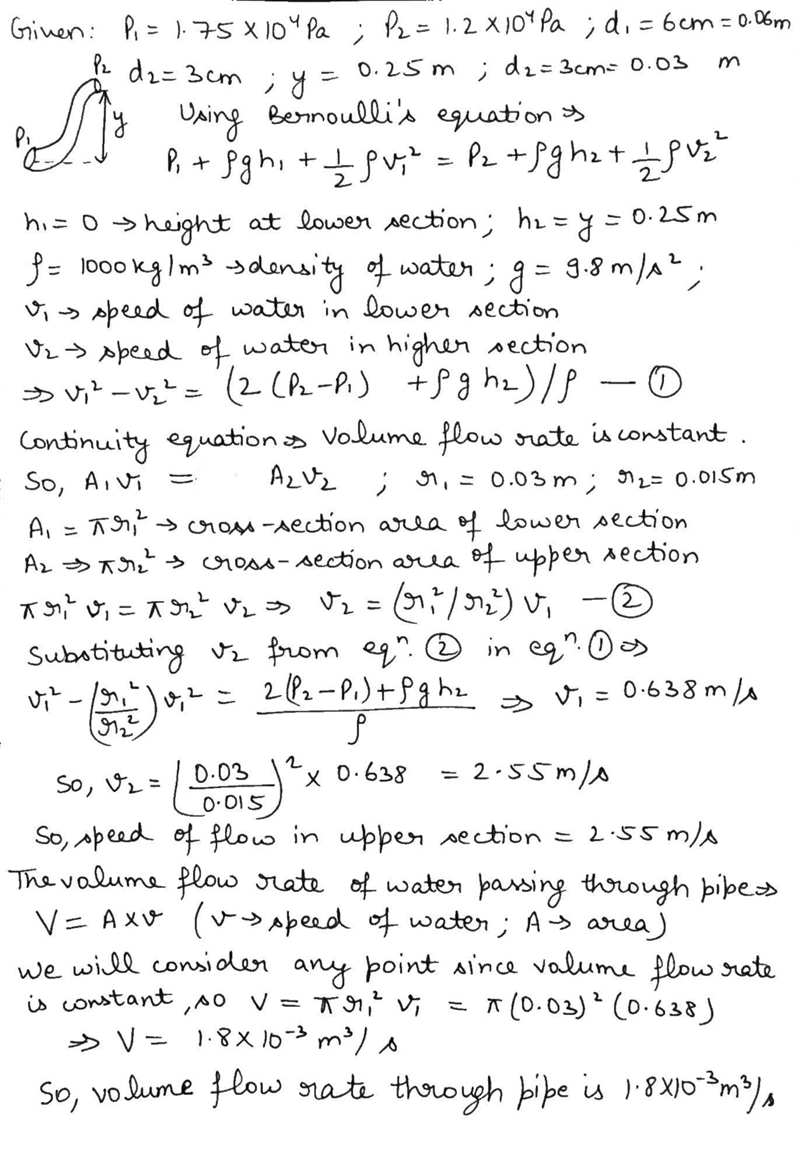 Given: P₁ = 1.75 × 10⁴ Pa ; P₂ = 1.2 × 10⁴ Pa ; d₁ = 6cm = 0.06m
P₂ d₂ = 3cm ; y = 0.25 m ; d₂ = 3cm = 0.03 m
P₁ y Using Bernoulli's equation ⇒
P₁ + ρgh₁ + 1/2 ρv₁² = P₂ + ρgh₂ + 1/2 ρv₂²
h₁ = 0 → height at lower section ; h₂ = y = 0.25m
ρ = 1000 kg/m³ → density of water ; g = 9.8 m/s² ;
v₁ → speed of water in lower section
v₂ → speed of water in higher section
⇒ v₁² - v₂² = (2 (P₂-P₁) + ρgh₂)/ρ — ①
Continuity equation ⇒ Volume flow rate is constant.
So, A₁v₁ = A₂v₂ ; r₁ = 0.03 m ; r₂ = 0.015m
A₁ = πr₁² → cross-section area of lower section
A₂ ⇒ πr₂² → cross-section area of upper section
πr₁² v₁ = πr₂² v₂ ⇒ v₂ = (r₁²/r₂²) v₁ — ②
Substituting v₂ from eqⁿ. ② in eqⁿ. ① ⇒
v₁² - (r₁²/r₂²) v₁² = (2(P₂-P₁) + ρgh₂)/ρ ⇒ v₁ = 0.638 m/s
So, v₂ = (0.03/0.015)² × 0.638 = 2.55 m/s
So, speed of flow in upper section = 2.55 m/s
The volume flow rate of water passing through pipe ⇒
V = A×v (v → speed of water ; A → area)
we will consider any point since volume flow rate
is constant, so V = πr₁² v₁ = π (0.03)² (0.638)
⇒ V = 1.8 × 10⁻³ m³/s
So, volume flow rate through pipe is 1.8×10⁻³ m³/s